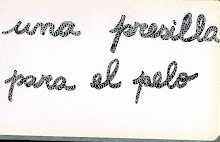 una presilla
para el pelo